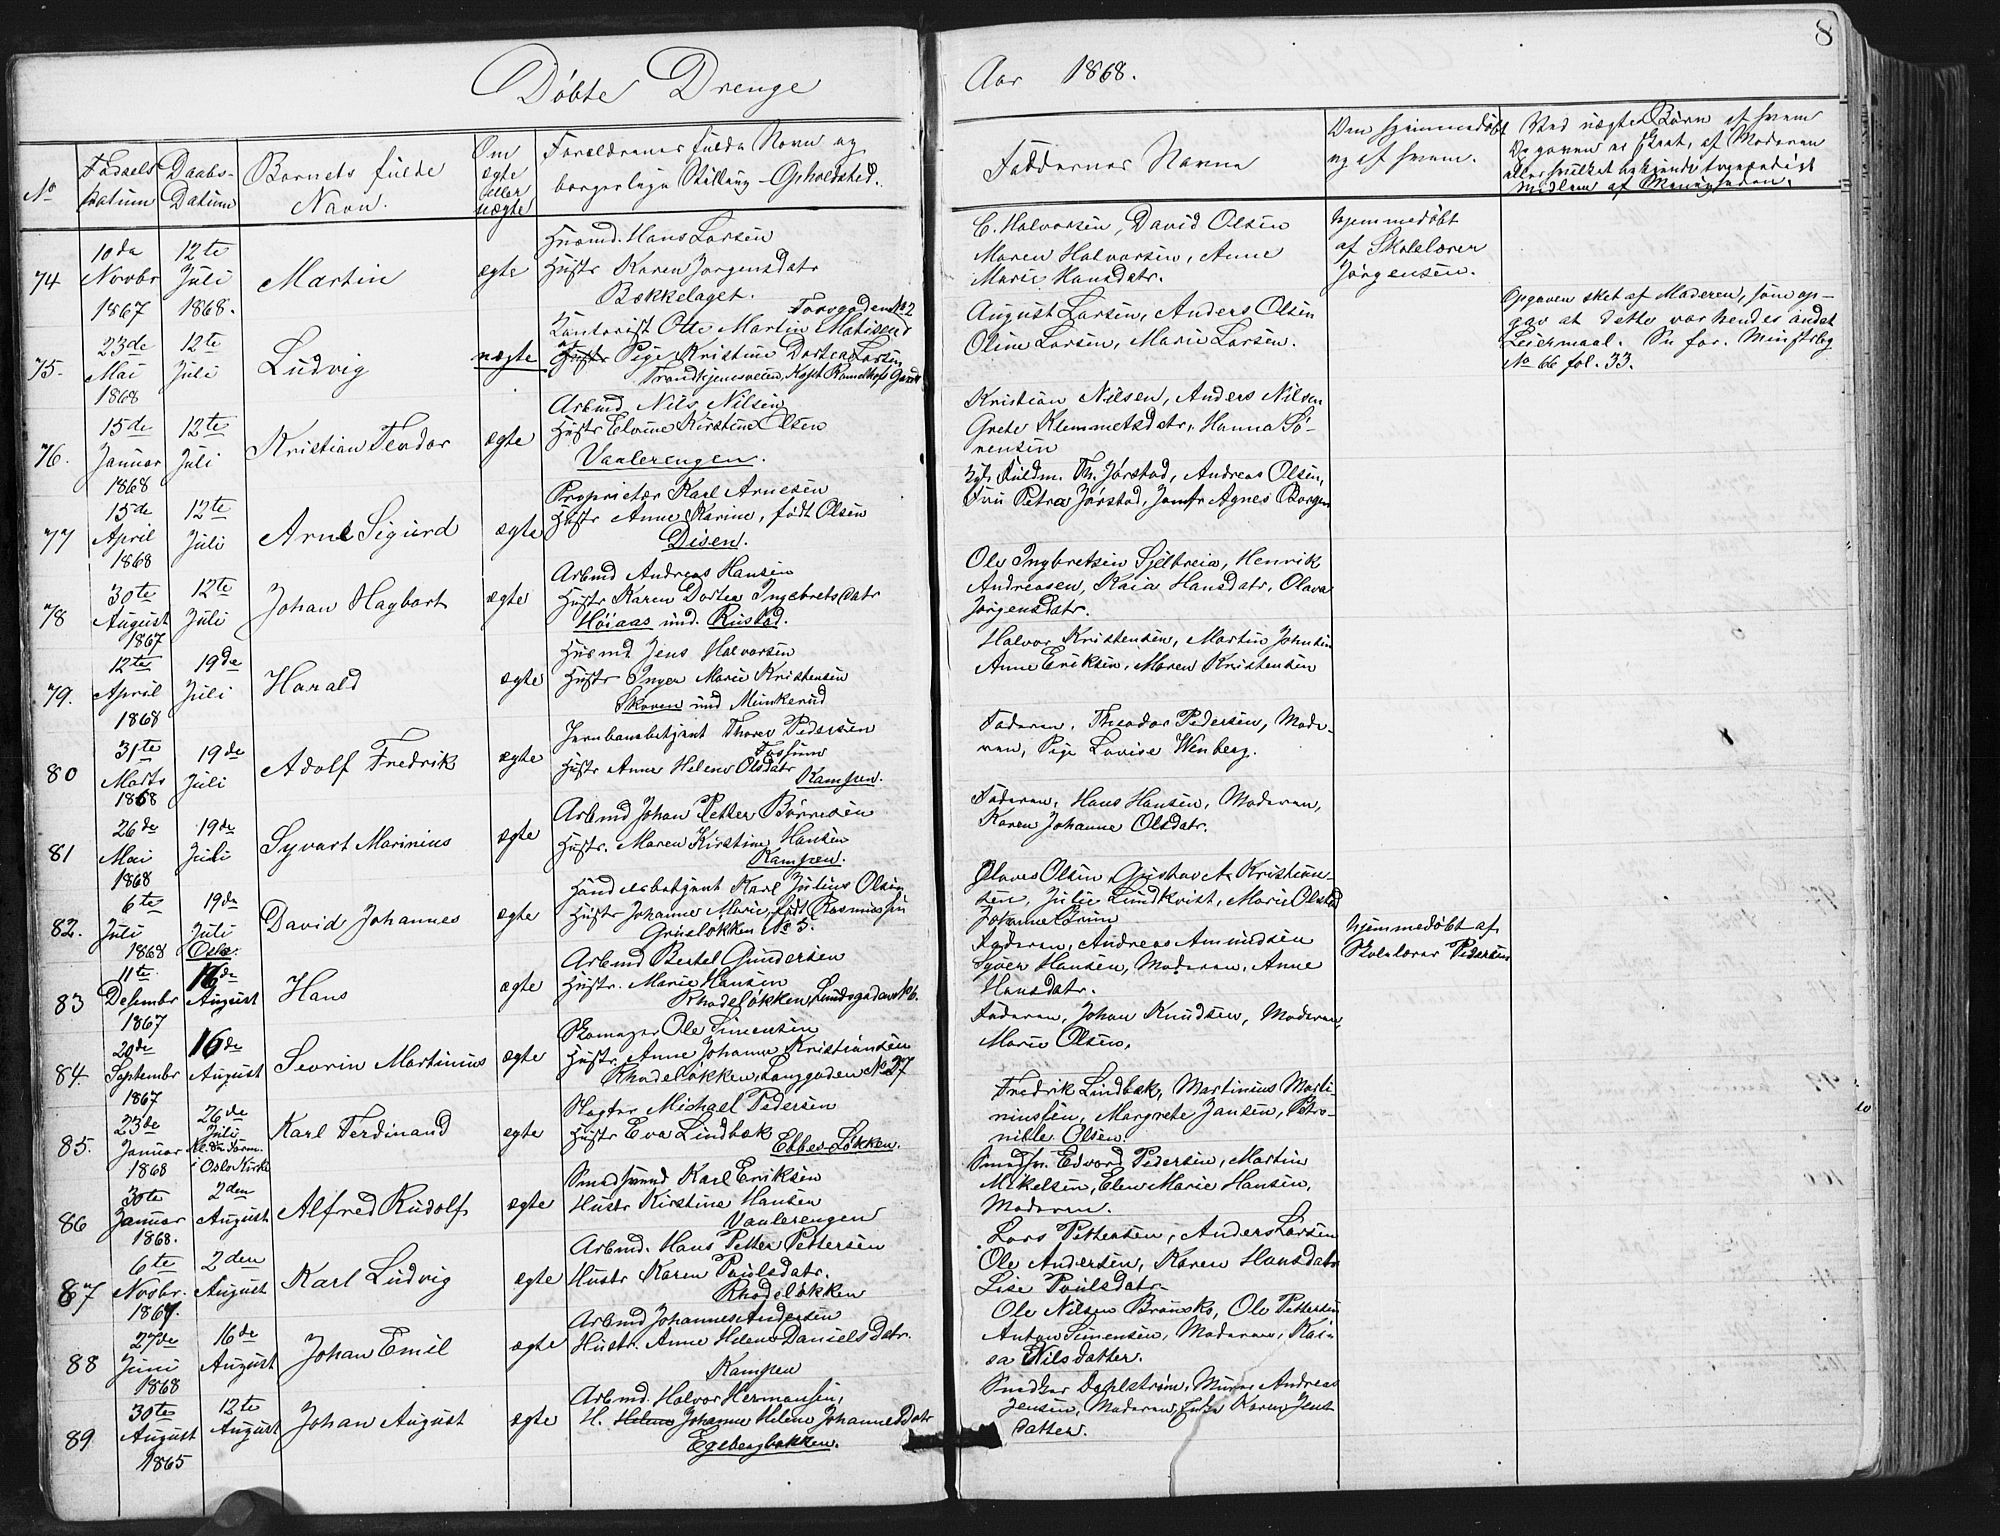 8
Döbte Drenge
Aar 1868.
No
Födsels Datum
Daabs-Datum
Barnets fulde Navn.
Om ægte eller uægte
Forældrenes fulde Navn og
borgerlige Stilling – Opholdsted.
Faddernes Navne
Om hjemmedöbt
og af hvem.
Ved uægte Börn af hvem
Opgaven er skeet, af Moderen
eller hvilket bekjendt troværdigt
Medlem af Menigheden.
74
10de Novbr 1867
12te Juli 1868.
Martin
ægte
Husmd. Hans Larsen
Hustr Karen Jorgensdatr
Bækkelaget.
C. Halvorsen, David Olsen
Maren Halvorsen, Anne
Marie Hansdatr.
hjemmedöbt
af Skolelærer
Jörgensen.
75.
23de Mai 1868
12te Juli
Ludvig
uægte
Torvgaden No 2
Kontorist Otto Martin Mathisen
og Pige Kristine Dortea Larsen
Trondhjemsveien, Kapt Ramelhofs Gaard
August Larsen, Anders Olsen
Oline Larsen, Marie Larsen.
Opgaven sket af Moderen, som op-
gav at dette var hendes andet
Leiermaal. Se for. Minstrbog
No 66 fol. 33.
76.
15de Januar 1868
12te Juli
Kristian Teodor
ægte
Arbmd Nils Nilsen
Hustr Elvine Kirstine Olsen
Vaalerengen.
Kristian Nilsen, Anders Nilsen
Grete Klemmetsdatr, Hanna Sö-
rensen
77
15de April 1868
12te Juli
Arne Sigurd
ægte
Proprietær Karl Arnesen
Hustr Anne Karine, född Olsen
Disen.
Fuldm. Th. Jörstad, Andreas Olsen,
Fru Petra Jörstad, Jomfr Agnes Borgen
78
30te August 1867
12te Juli
Johan Hagbart
ægte
Arbmd Andreas Hansen
Hustr Karen Dortea Ingebretsdatr
Höiaas und. Rustad.
Ole Ingbretsen Sjelbreia, Henrik
Andreasen, Kaia Hansdatr, Olava
Jorgensdatr.
79.
12te April 1868
19de Juli
Harald
ægte
Husmd Jens Halvorsen
Hustr Inger Marie Kristensen
Skoven und Munkerud
Halvor Kristensen, Martin Johnsen
Anne Eriksen, Maren Kristensen
80
31te Marts 1868
19de Juli
Adolf Fredrik
ægte
Jernbanebetjent Thorer Pedersen
Fossum
Hustr Anne Helene Olsdatr
Kampen.
Faderen, Theodor Pedersen, Mode-
ren, Pige Lovise Wenberg.
81
26de Mai 1868
19de Juli
Syvart Marinius
ægte
Arbmd Johan Petter Börresen
Hustr. Maren Kirstine Hansen
Kampen.
Faderen, Hans Hansen, Moderen,
Karen Johanne Olsdatr.
82.
6te Juli 1868
19de Juli Oslo.
David Johannes
ægte
Handelsbetjent Karl Julius Olsen
Hustr Johanne Marie, född Rasmussen
Grüslökken No 5.
Olaves Olsen, Gustav A. Kristian-
sen, Julie Lindkvist, Marie Olstad
Johanne Brun
83
11te Desembr 1867
16de August
Hans
ægte
Arbmd Bertel Gundersen
Hustr. Marie Hansen
Rhodelökken, Lundsgaden No 6.
Faderen, Andreas Amundsen
Syver Hansen, Moderen, Anne
Hansdatr.
hjemmedöbt af
Skolelærer Pedersen
84.
20de Septembr 1867
16de August
Severin Martinius
ægte
Skomager Ole Simensen
Hustr. Anne Johanne Kristiansen
Rhodelökken, Langgaden No 27
Faderen, Johan Knudsen, Moderen,
Marie Olsen.
85.
23de Januar 1868
26de Juli Kl. 8 Form. i Oslo Kirke
Karl Ferdinand
ægte
Slagter Michael Pedersen
Hustr Eva Lindbæk
Ebbes Lökken.
Fredrik Lindbæk, Martinius Marti-
niussen, Margrete Jansen, Petro-
nille Olsen.
86
30te Januar 1868.
2den August
Alfred Rudolf
ægte
Smedsvend Karl Eriksen
Hustr Kirstine Hansen
Vaalerengen
Smedsv. Edvard Pedersen, Martin
Mikelsen, Elen Marie Hansen,
Moderen.
87
6te Novbr. 1867.
2den August
Karl Ludvig
ægte
Arbmd. Hans Petter Pettersen
Hustr Karen Paulsdatr.
Rhodelökken
Lars Pettersen, Anders Larsen
Ole Andersen, Karen Hansdatr
Lise Paulsdatr
88
27de Juni 1868
16de August
Johan Emil
ægte
Arbmd Johannes Andersen
Hustr. Anne Helene Daniels Datr.
Kampen
Ole Nilsen Braasko, Ole Pettersen
Anton Simensen, Moderen, Kai-
sa Nilsdatter.
89
30te August 1865
12te August
Johan August
ægte
Arbmd. Halvor Hermansen,
H. Helene Johanne Helene Johannes Datr
Egebergbakken.
Snedker Dahlström, Murer Andreas
Jensen, Moderen, Enke Karen Jens
datter.